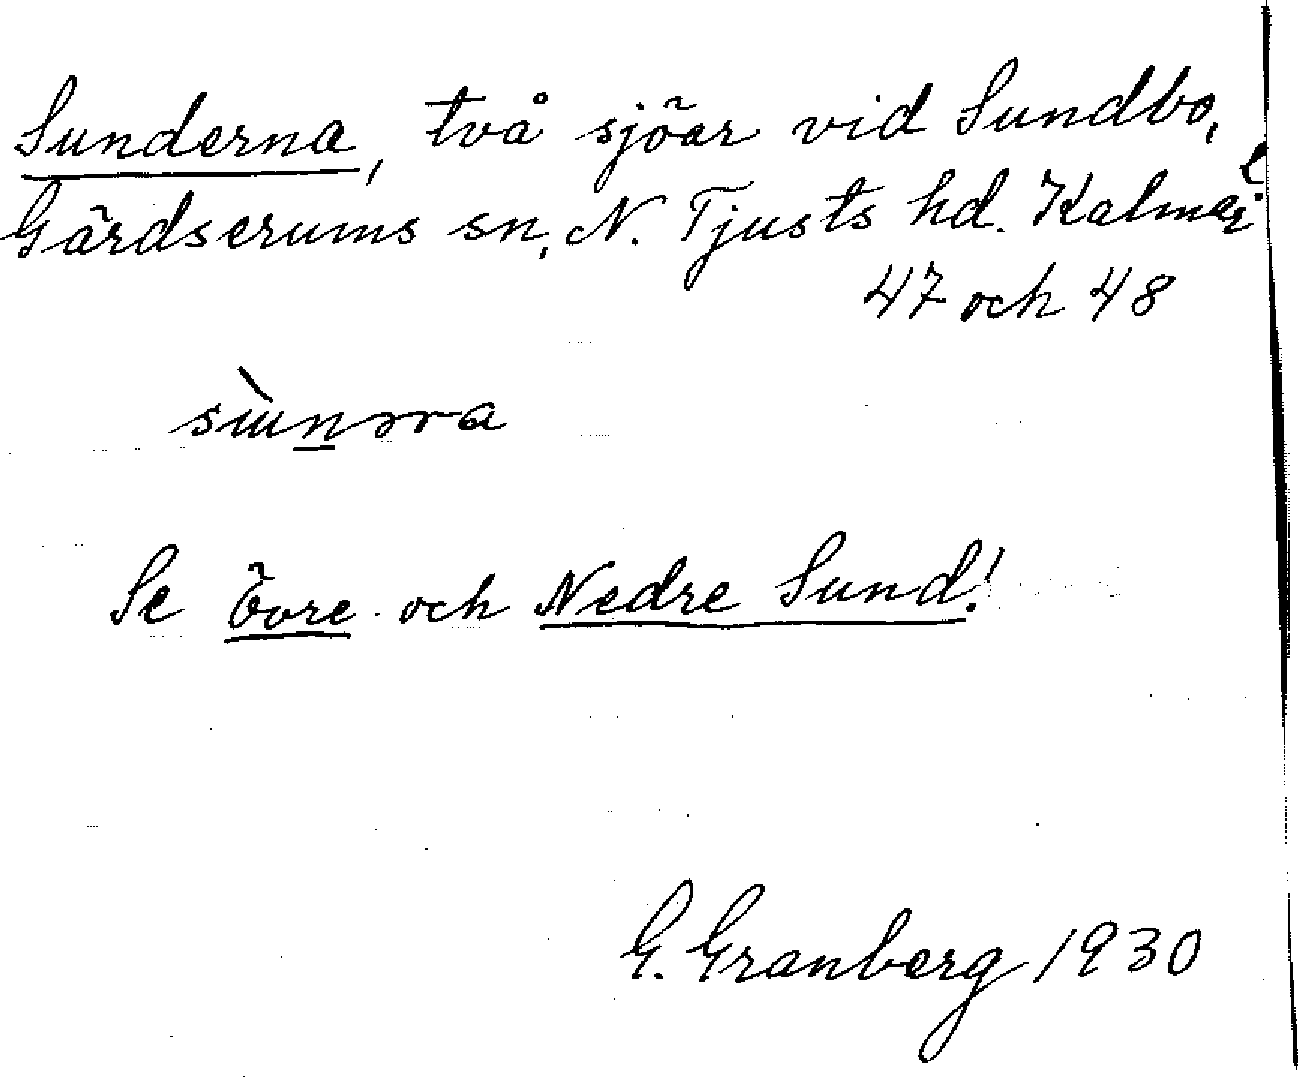 Sunderna, två sjöar vid Sundbo,
Gärdserums sn, N. Tjusts hd. Kalmar l
47 och 48
Se Övre och Nedre Sund!
G. Granberg 1930